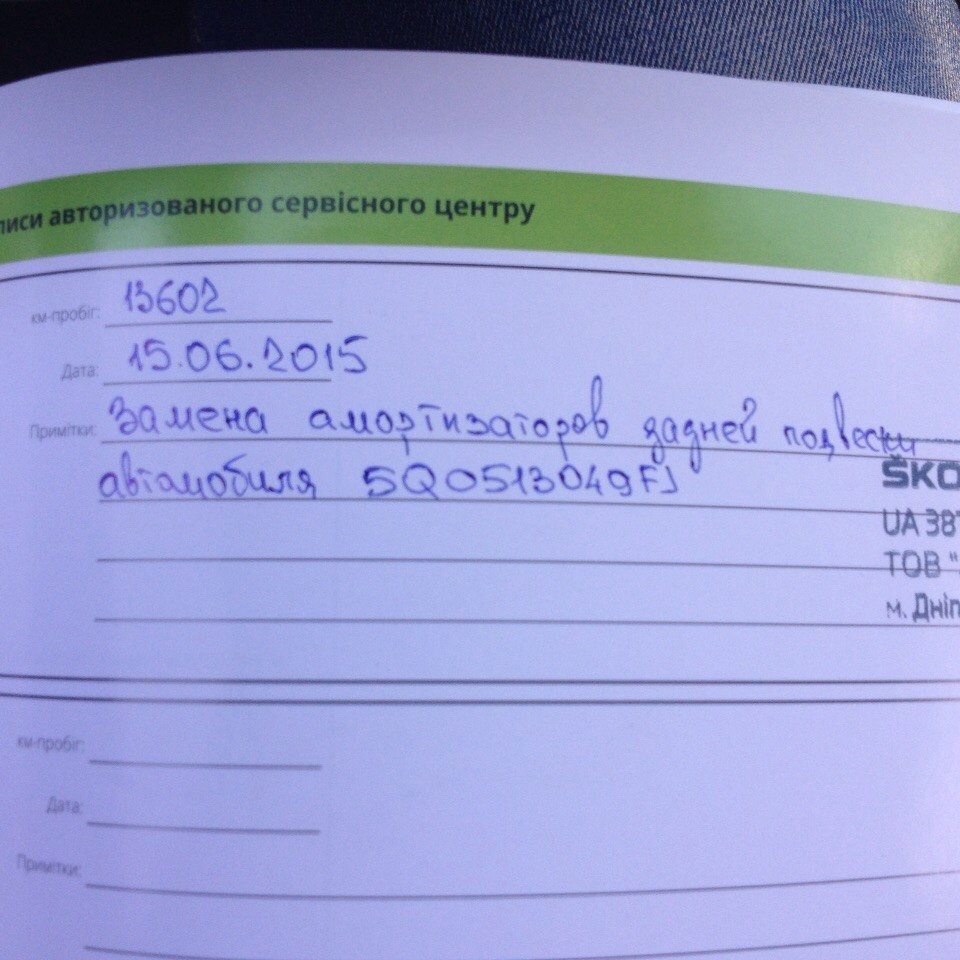 писи авторизованого сервісного центру
км-пробіг: 13602
Дата: 15.06.2015
Примітки: Замена амортизаторов задней подвески
автомобиля 5Q0513049FJ
ŠKO
UA 387
ТОВ "
м. Дніп
км-пробіг:
Дата:
Примітки: